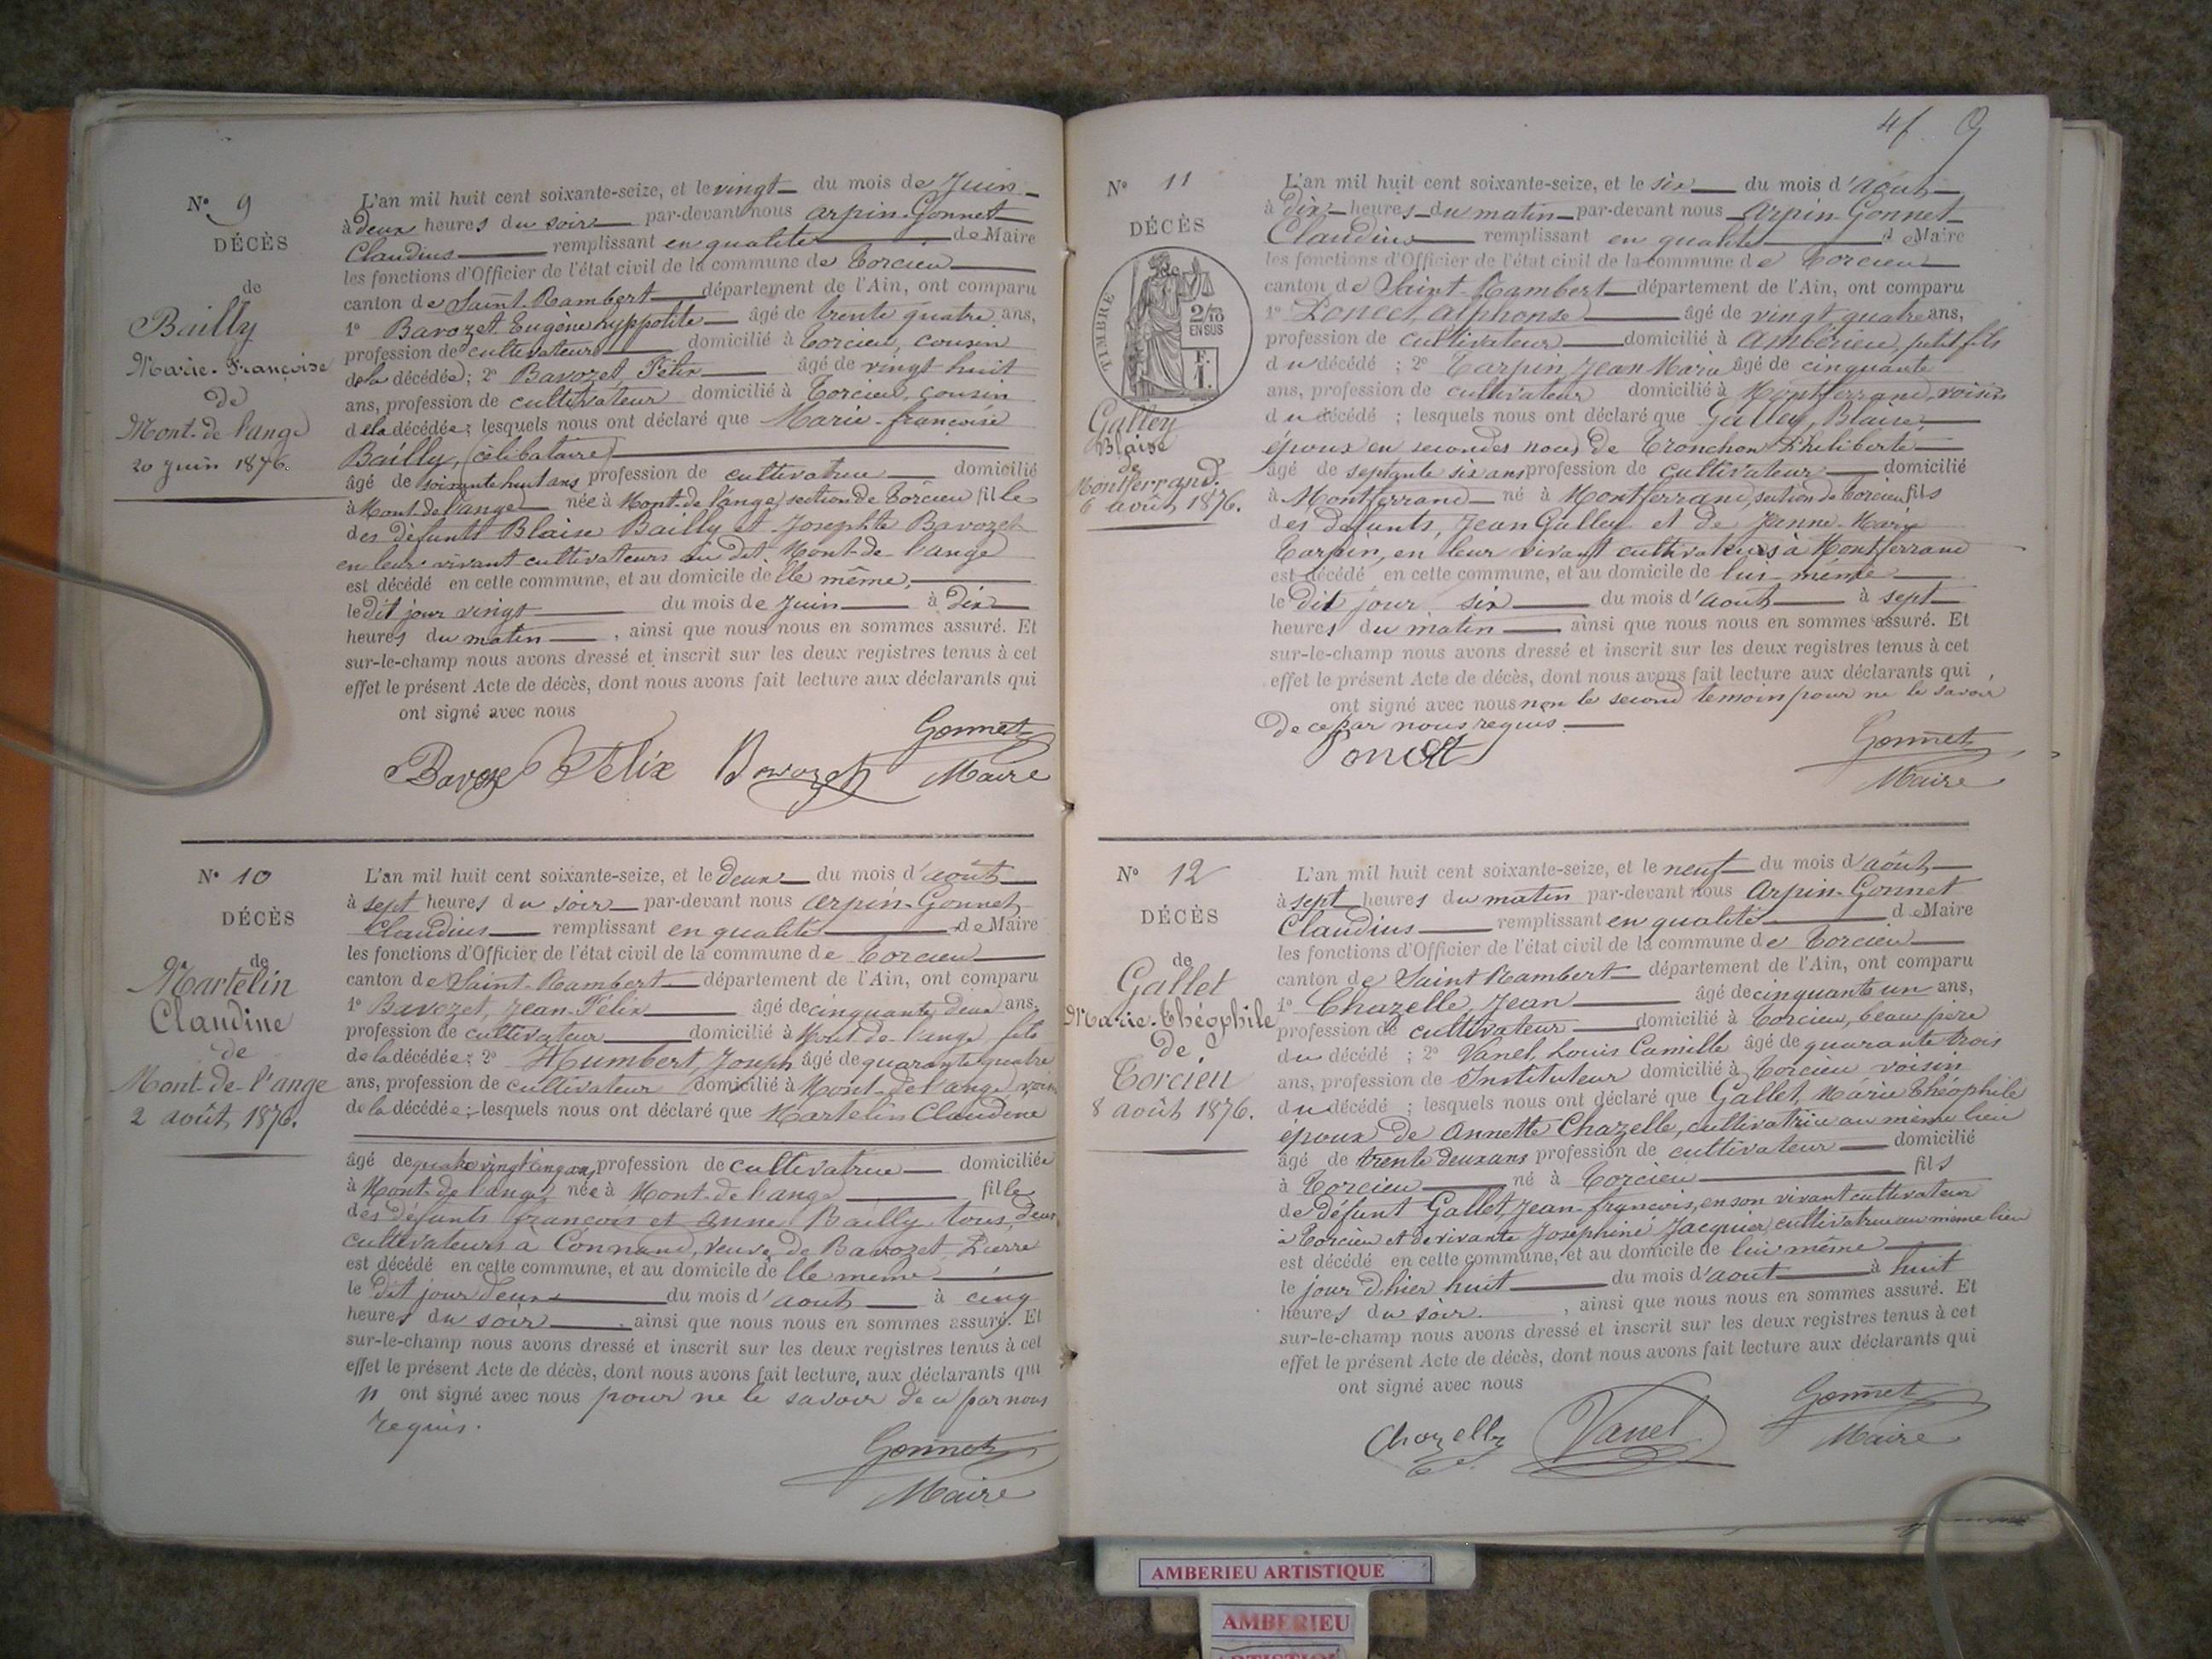 N° 9
DÉCÈS
de
Bailly
Marie-Françoise
de
Mont-de l'ange
20 juin 1876.
L'an mil huit cent soixante-seize, et le vingt du mois de Juin
à deux heures du soir par-devant nous Arpin-Gonnet
Claudius remplissant en qualité de Maire
les fonctions d'Officier de l'état civil de la commune de Torcieu
canton de Saint-Rambert département de l'Ain, ont comparu
1° Bavozet Eugène hyppolite âgé de trente quatre ans,
profession de cultivateur domicilié à Torcieu, cousin
de la décédée; 2° Bavozet, Félix âgé de vingt huit
ans, profession de cultivateur domicilié à Torcieu, cousin
de la décédée; lesquels nous ont déclaré que Marie-françoise
Bailly, (célibataire)
âgé de soixante huit ans profession de cultivatrice domicilié
à Mont-de l'ange née à Mont-de l'ange, section de Torcieu fille
des défunts Blaise Bailly et Josephte Bavozet
en leur vivant cultivateurs au dit Mont-de l'ange
est décédé en cette commune, et au domicile de lle même,
le dit jour vingt du mois de Juin à dix
heures du matin , ainsi que nous nous en sommes assuré. Et
sur-le-champ nous avons dressé et inscrit sur les deux registres tenus à cet
effet le présent Acte de décès, dont nous avons fait lecture aux déclarants qui
ont signé avec nous
Gonnet
Bavozet Félix Bavozet Maire
N° 10
DÉCÈS
de
Martelin
Claudine
de
Mont-de-l'ange
2 août 1876.
L'an mil huit cent soixante-seize, et le deux du mois d'août
à sept heures du soir par-devant nous Arpin-Gonnet
Claudius remplissant en qualité de Maire
les fonctions d'Officier de l'état civil de la commune de Torcieu
canton de Saint-Rambert département de l'Ain, ont comparu
1° Bavozet, Jean-Félix âgé de cinquante deux ans,
profession de cultivateur domicilié à Mont-de l'ange, fils
de la décédée; 2° Humbert, Joseph âgé de quarante quatre
ans, profession de cultivateur domicilié à Mont-de l'ange, voisin
de la décédée; lesquels nous ont déclaré que Martelin Claudine
âgé de quatre vingt cinq ans, profession de cultivatrice domiciliée
à Mont-de l'ange née à Mont-de l'ange fille
des défunts françois et Anne Bailly tous deux
cultivateurs à Connand, veuve de Bavozet Pierre
est décédé en cette commune, et au domicile de lle même
le dit jour deux du mois d'août à cinq
heures du soir ainsi que nous nous en sommes assuré. Et
sur-le-champ nous avons dressé et inscrit sur les deux registres tenus à cet
effet le présent Acte de décès, dont nous avons fait lecture aux déclarants qui
n ont signé avec nous pour ne le savoir de ce par nous
requis.
Gonnet
Maire
N° 11
DÉCÈS
TIMBRE
2/10
EN SUS
F.
1.
Galley
Blaise
de
Montferrand.
6 août 1876.
L'an mil huit cent soixante-seize, et le six du mois d'août
à dix heures du matin par-devant nous Arpin-Gonnet
Claudius remplissant en qualité de Maire
les fonctions d'Officier de l'état civil de la commune de Torcieu
canton de Saint-Rambert département de l'Ain, ont comparu
1° Poncet, alphonse âgé de vingt quatre ans,
profession de cultivateur domicilié à Ambérieu, petit fils
du décédé ; 2° Tarpin Jean Marie âgé de cinquante
ans, profession de cultivateur domicilié à Montferrand, voisin
du décédé ; lesquels nous ont déclaré que Galley, Blaise,
époux en secondes noces de Tronchon Philiberte
âgé de septante six ans profession de cultivateur domicilié
à Montferrand né à Montferrand, section de Torcieu fils
des défunts, Jean Galley et de Janne-Marie
Tarpin, en leur vivant cultivateurs à Montferrand
est décédé en cette commune, et au domicile de lui-même
le dit jour six du mois d'août à sept
heures du matin ainsi que nous nous en sommes assuré. Et
sur-le-champ nous avons dressé et inscrit sur les deux registres tenus à cet
effet le présent Acte de décès, dont nous avons fait lecture aux déclarants qui
ont signé avec nous non le second temoin pour ne le savoir
de ce par nous requis.
Poncet
Gonnet
Maire
N° 12
DÉCÈS
de
Gallet
Marie-Théophile
de
Torcieu
8 août 1876.
L'an mil huit cent soixante-seize, et le neuf du mois d'août
à sept heures du matin par-devant nous Arpin-Gonnet
Claudius remplissant en qualité de Maire
les fonctions d'Officier de l'état civil de la commune de Torcieu
canton de Saint Rambert département de l'Ain, ont comparu
1° Chazelle, Jean âgé de cinquante un ans,
profession de cultivateur domicilié à Torcieu, beau-père
du décédé ; 2° Vanel, Louis Camille âgé de quarante trois
ans, profession de Instituteur domicilié à Torcieu voisin
du décédé ; lesquels nous ont déclaré que Gallet, Marie Théophile
époux de Annette Chazelle, cultivatrice au même lieu
âgé de trente deux ans profession de cultivateur domicilié
à Torcieu né à Torcieu fils
de défunt Gallet, Jean-françois, en son vivant cultivateur
à Torcieu et de vivante Joséphine Jacquier cultivatrice au même lieu
est décédé en cette commune, et au domicile de lui même
le jour d'hier huit du mois d'août à huit
heures du soir. , ainsi que nous nous en sommes assuré. Et
sur-le-champ nous avons dressé et inscrit sur les deux registres tenus à cet
effet le présent Acte de décès, dont nous avons fait lecture aux déclarants qui
ont signé avec nous
Chazelle Vanel Gonnet
Maire
AMBERIEU ARTISTIQUE
AMBERIEU
ARTISTIQUE